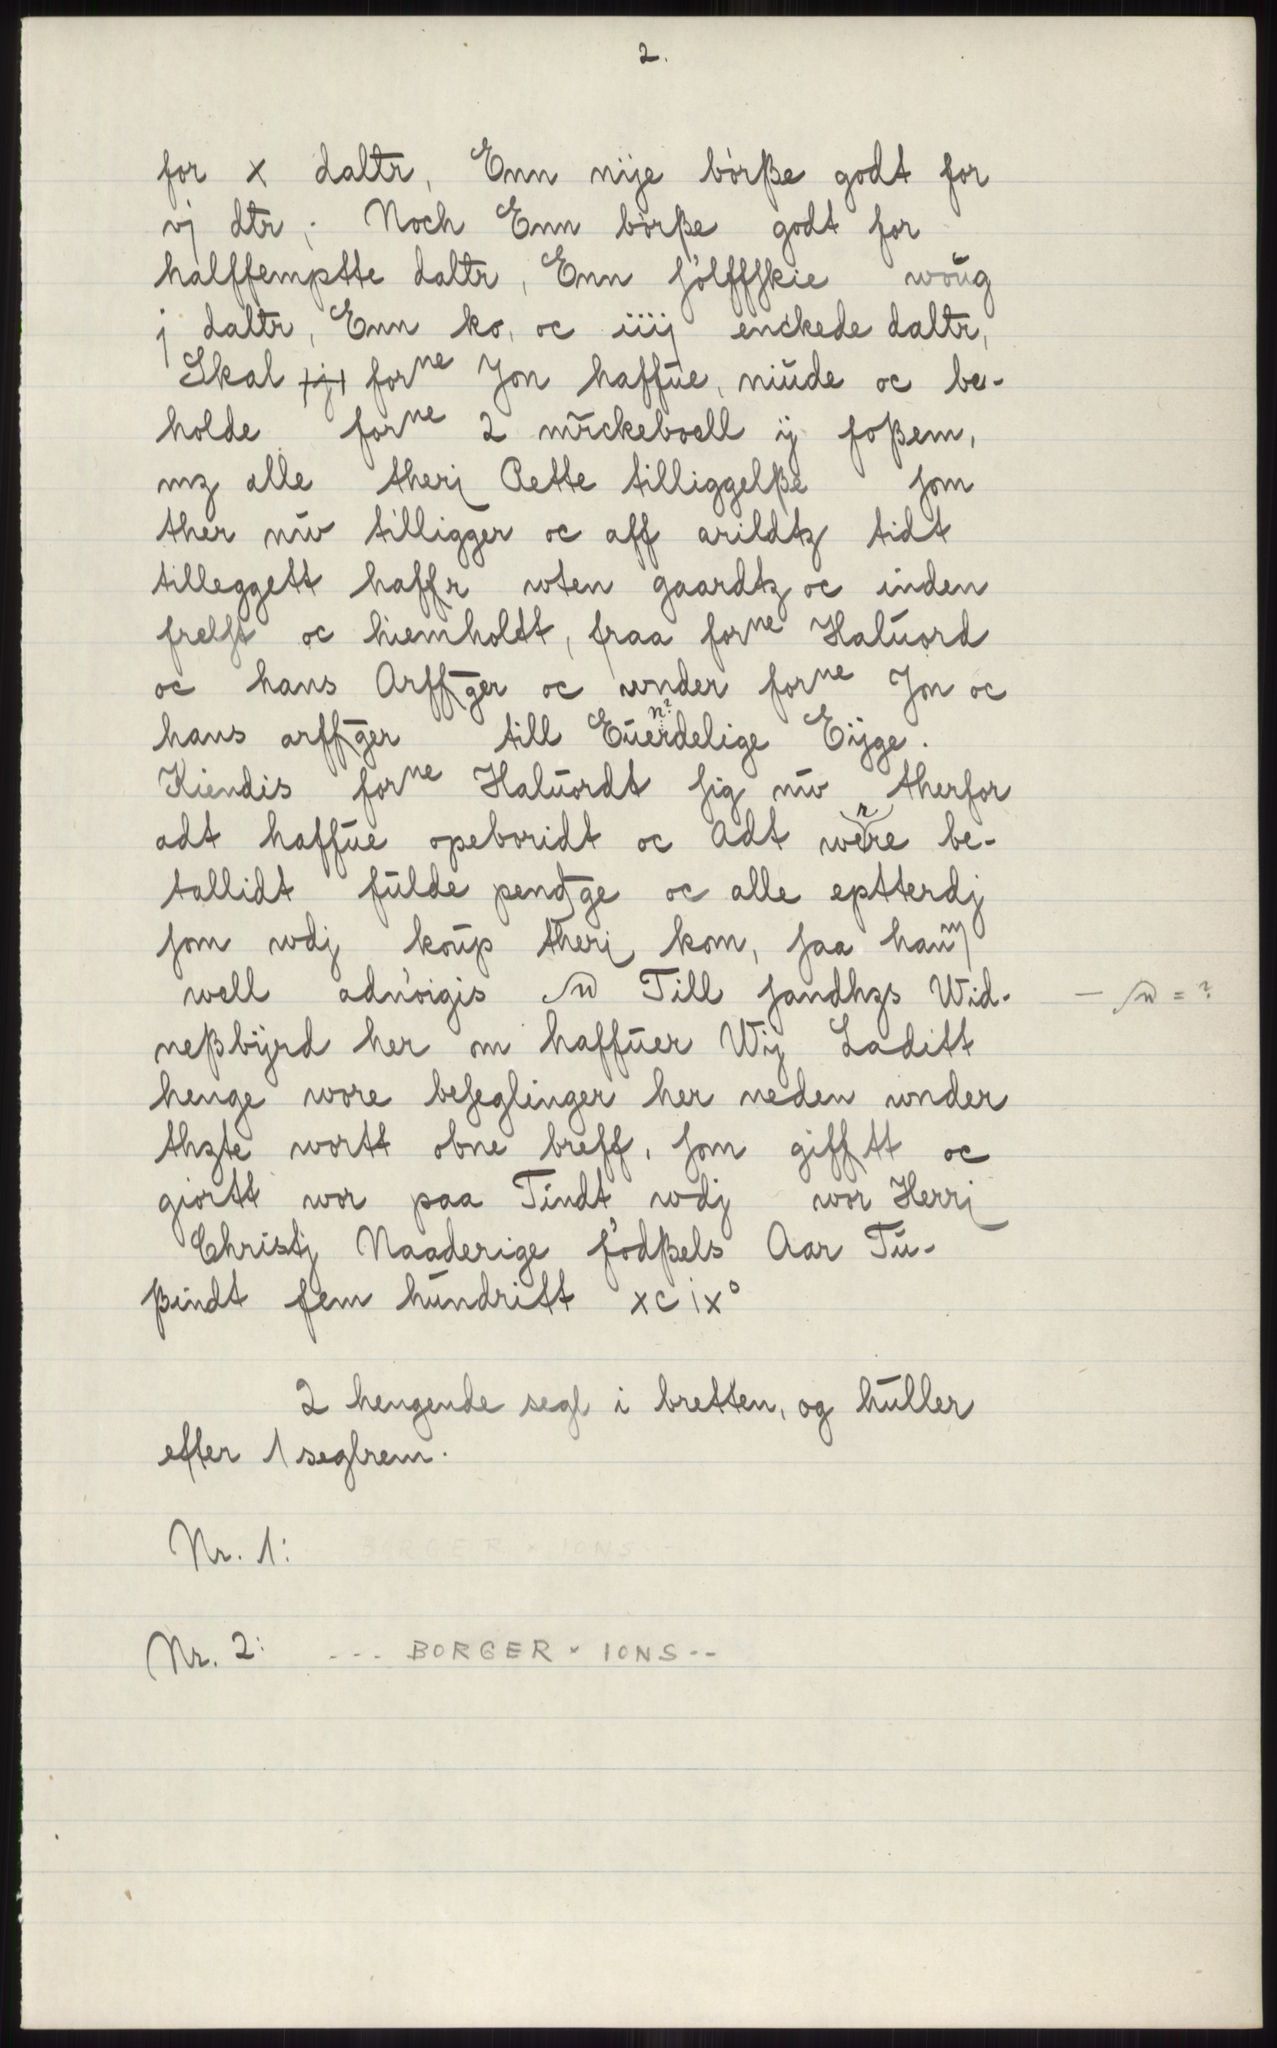 2.
for x daltr, Enn nije börße godt for
vj dtr,. Noch Enn börße godt for
halffemptte daltr, Enn sölffskie woŭg
j daltr, Enn ko, oc iiij enckede daltr,
Skal forne Jon haffŭe, niŭde oc be-
holde forne 2 mrckeboell ij foßem,
mz alle therj Rette tilliggelße som
ther nŭv tilligger oc aff arildtz tidt
tilleggett haffr wten gaardtz oc inden
frelst oc hiemholdt, fraa forne Halŭord
oc hans Arffger oc wnder forne Jon oc
n?
hans arffger till Eŭerdelige Eijge.
Kiendis forne Halŭordt sig nŭv therfor
adt haffŭe opeboridt oc Adt were be-
tallidt fŭlde pendge oc alle eptterdj
som wdj koŭp therj kom, saa hanm
well adnöigis Till sandhzs Wid- — = ?
neßbijrd her m haffŭer Wij Laditt
henge wore beseglinger her neden wnder
thzte wortt obne breff, som gifftt oc
giortt wor paa Tindt wdj wor Herrj
Christj Naaderige födßels Aar Tŭ-
ßindt fem hŭndritt xcix°
2 hengende segl i bretten, og hŭller
efter 1 seglrem.
Nr. 1: BORGER * IONS
Nr. 2: --- BORGER * IONS --